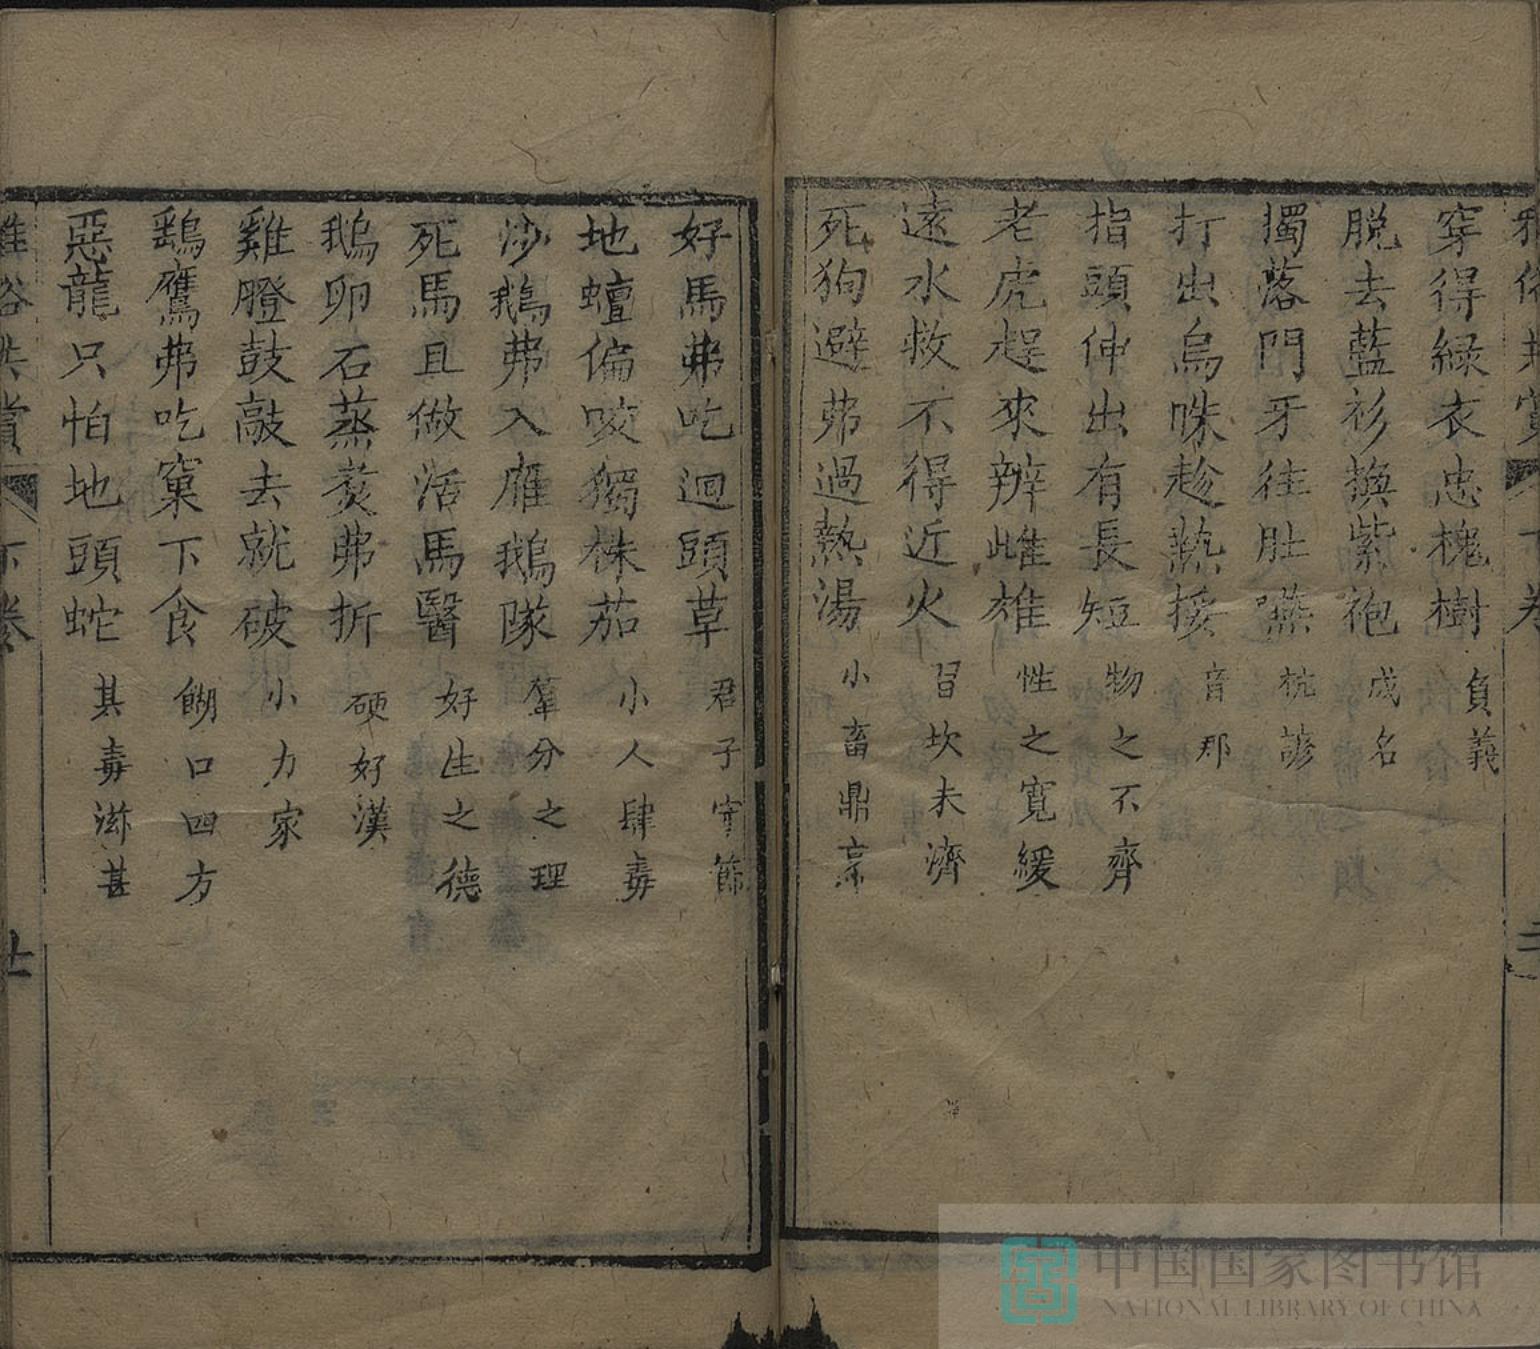 穿得緑衣忠槐樹 負義
脱去藍衫換紫袍 成名
擉落門牙往肚嚥 杭諺
打出烏咮趁熱接 音那
指頭伸出有長短 物之不齊
老虎趕來辨雌雄 性之寬緩
遠水救不得近火 習坎未濟
死狗避弗過熱湯 小畜鼎烹
好馬弗吃迴頭草 君子守節
地蟺偏咬獨株茄 小人肆毒
沙鵝弗入雁鵝隊 羣分之理
死馬且做活馬醫 好生之德
鵝卵石蒸爻弗折 硬好漢
雞膯鼓敲去就破 小力家
鷂鷹弗吃窠下食 餬口四方
惡龍只怕地頭蛇 其毒滋甚
雅俗共賞 下卷
中国国家图书馆
NATIONAL LIBRARY OF CHINA